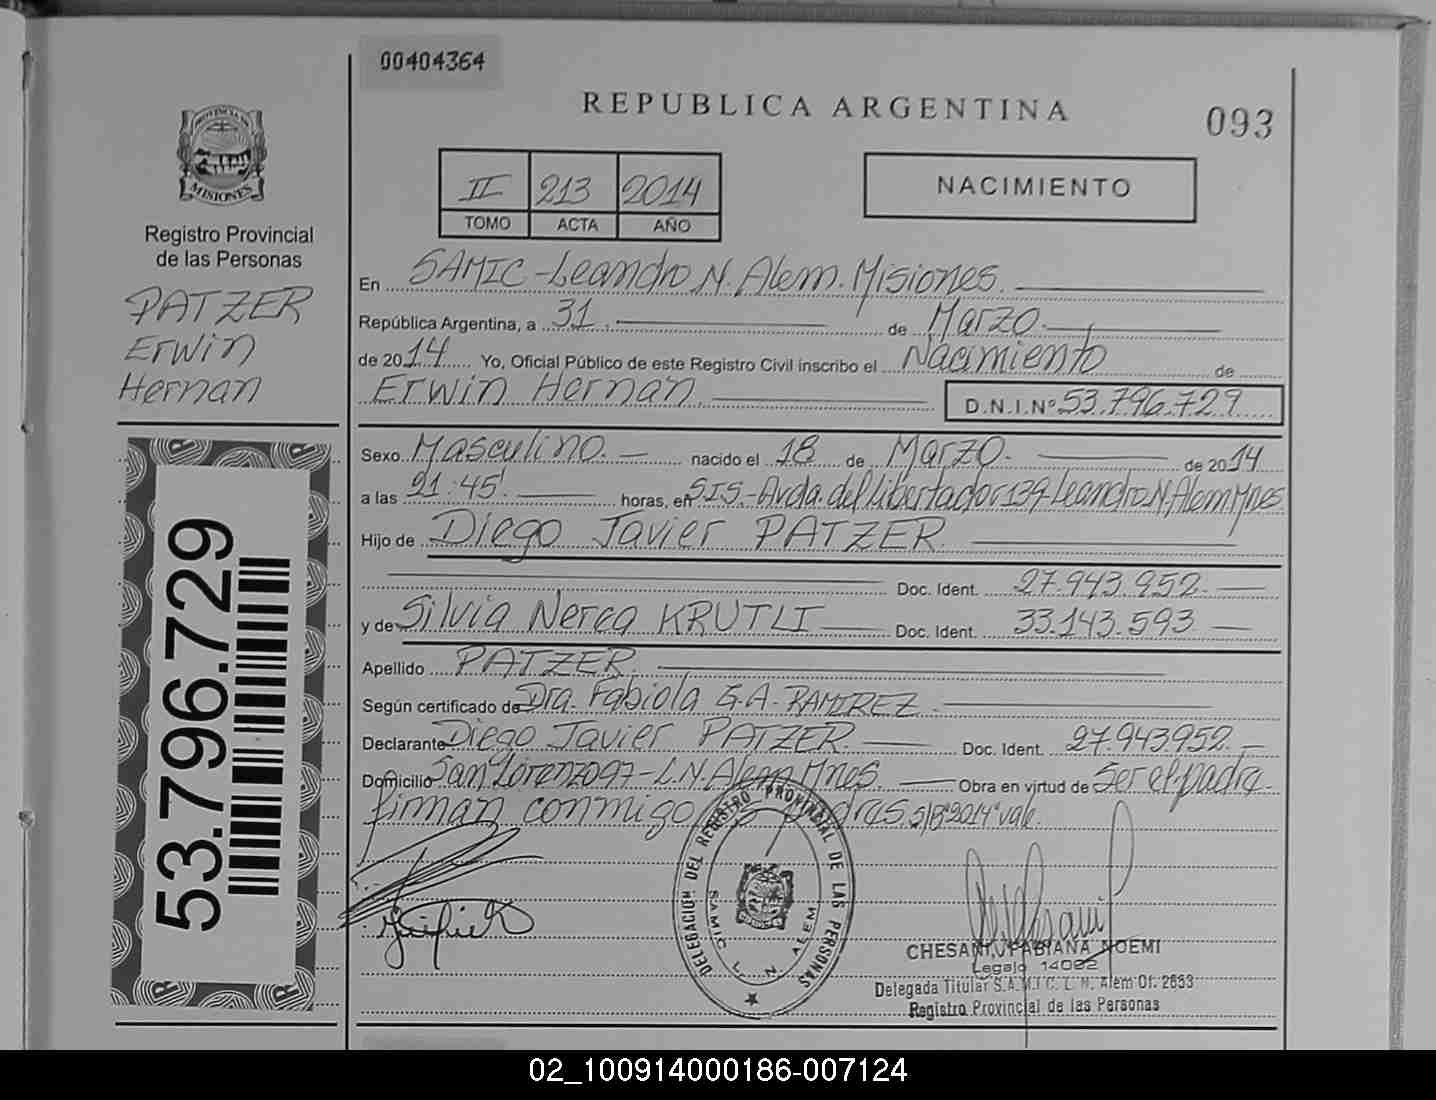 00404364
REPUBLICA ARGENTINA
093
PROVINCIA DE
MISIONES
II 213 2014
TOMO ACTA AÑO
NACIMIENTO
Registro Provincial
de las Personas
PATZER
Erwin
Hernan
En SAMIC - Leandro N. Alem. Misiones.
República Argentina, a 31 de Marzo
de 2014 Yo, Oficial Público de este Registro Civil inscribo el Nacimiento de
Erwin Hernan D.N.I.Nº 53.796.729
Sexo Masculino. nacido el 18 de Marzo. de 2014
a las 21:45' horas, en SIS.-Avda. del libertador 139-Leandro N. Alem Mnes.
Hijo de Diego Javier PATZER
Doc. Ident. 27.943.952.
y de Silvia Nerea KRUTLI Doc. Ident. 33.143.593
Apellido PATZER
Según certificado de Dra. Fabiola G.A. RAMIREZ
Declarante Diego Javier PATZER. Doc. Ident. 27.943.952.
Domicilio San Lorenzo 97 - L.N. Alem Mnes. Obra en virtud de Ser el padre.
firman conmigo los padres. S/B "2014" vale.
53.796.729
DELEGACION DEL REGISTRO PROVINCIAL DE LAS PERSONAS
SAMIC L. N. ALEM
CHESANI, FABIANA NOEMI
Legajo 14092
Delegada Titular S.A.M.I.C. L. N. Alem Of. 2653
Registro Provincial de las Personas
02_100914000186-007124